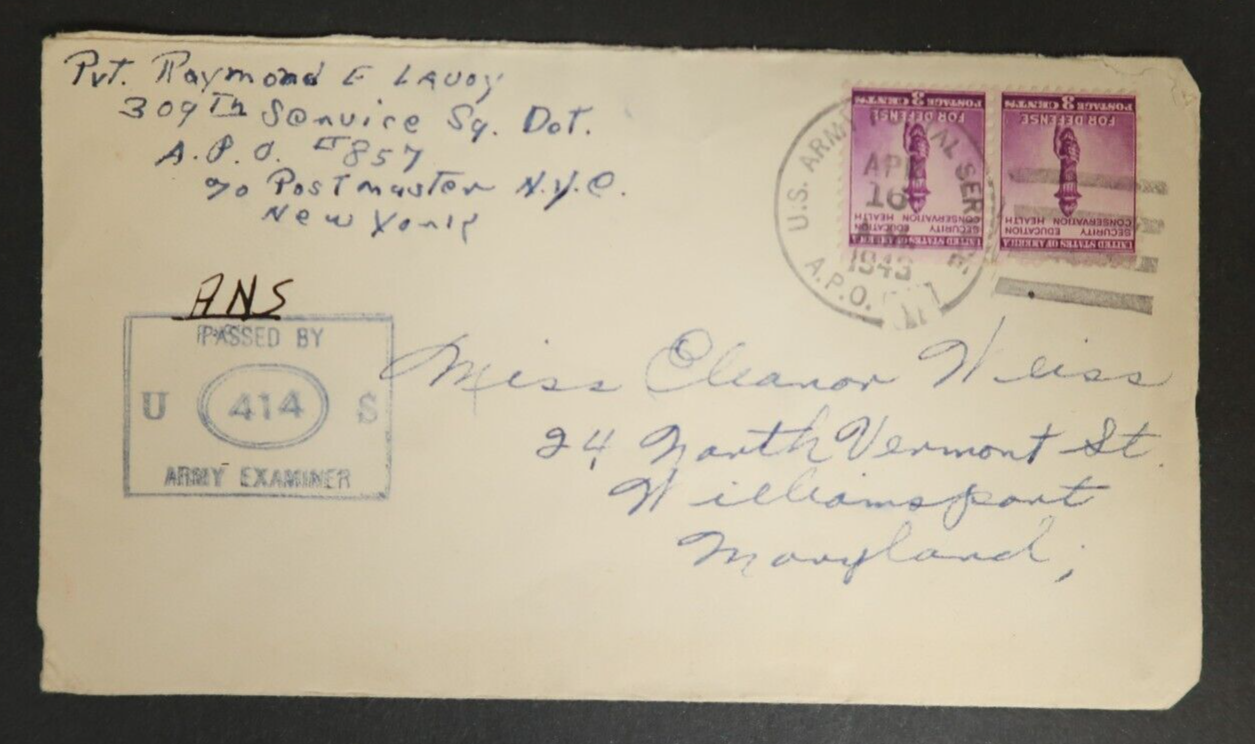 Pvt. Raymond E LAVOY
309Th Service Sq. Det.
A.P.O. #857
c/o Postmaster N.Y.C.
New York
ANS
PASSED BY
U 414 S
ARMY EXAMINER
U.S. ARMY POSTAL SERVICE
APR
16
1943
A.P.O.
POSTAGE 3 CENTS
FOR DEFENSE
SECURITY EDUCATION
CONSERVATION HEALTH
UNITED STATES OF AMERICA
POSTAGE 3 CENTS
FOR DEFENSE
SECURITY EDUCATION
CONSERVATION HEALTH
UNITED STATES OF AMERICA
Miss Eleanor Weiss
24 North Vermont St.
Williamsport
Maryland;